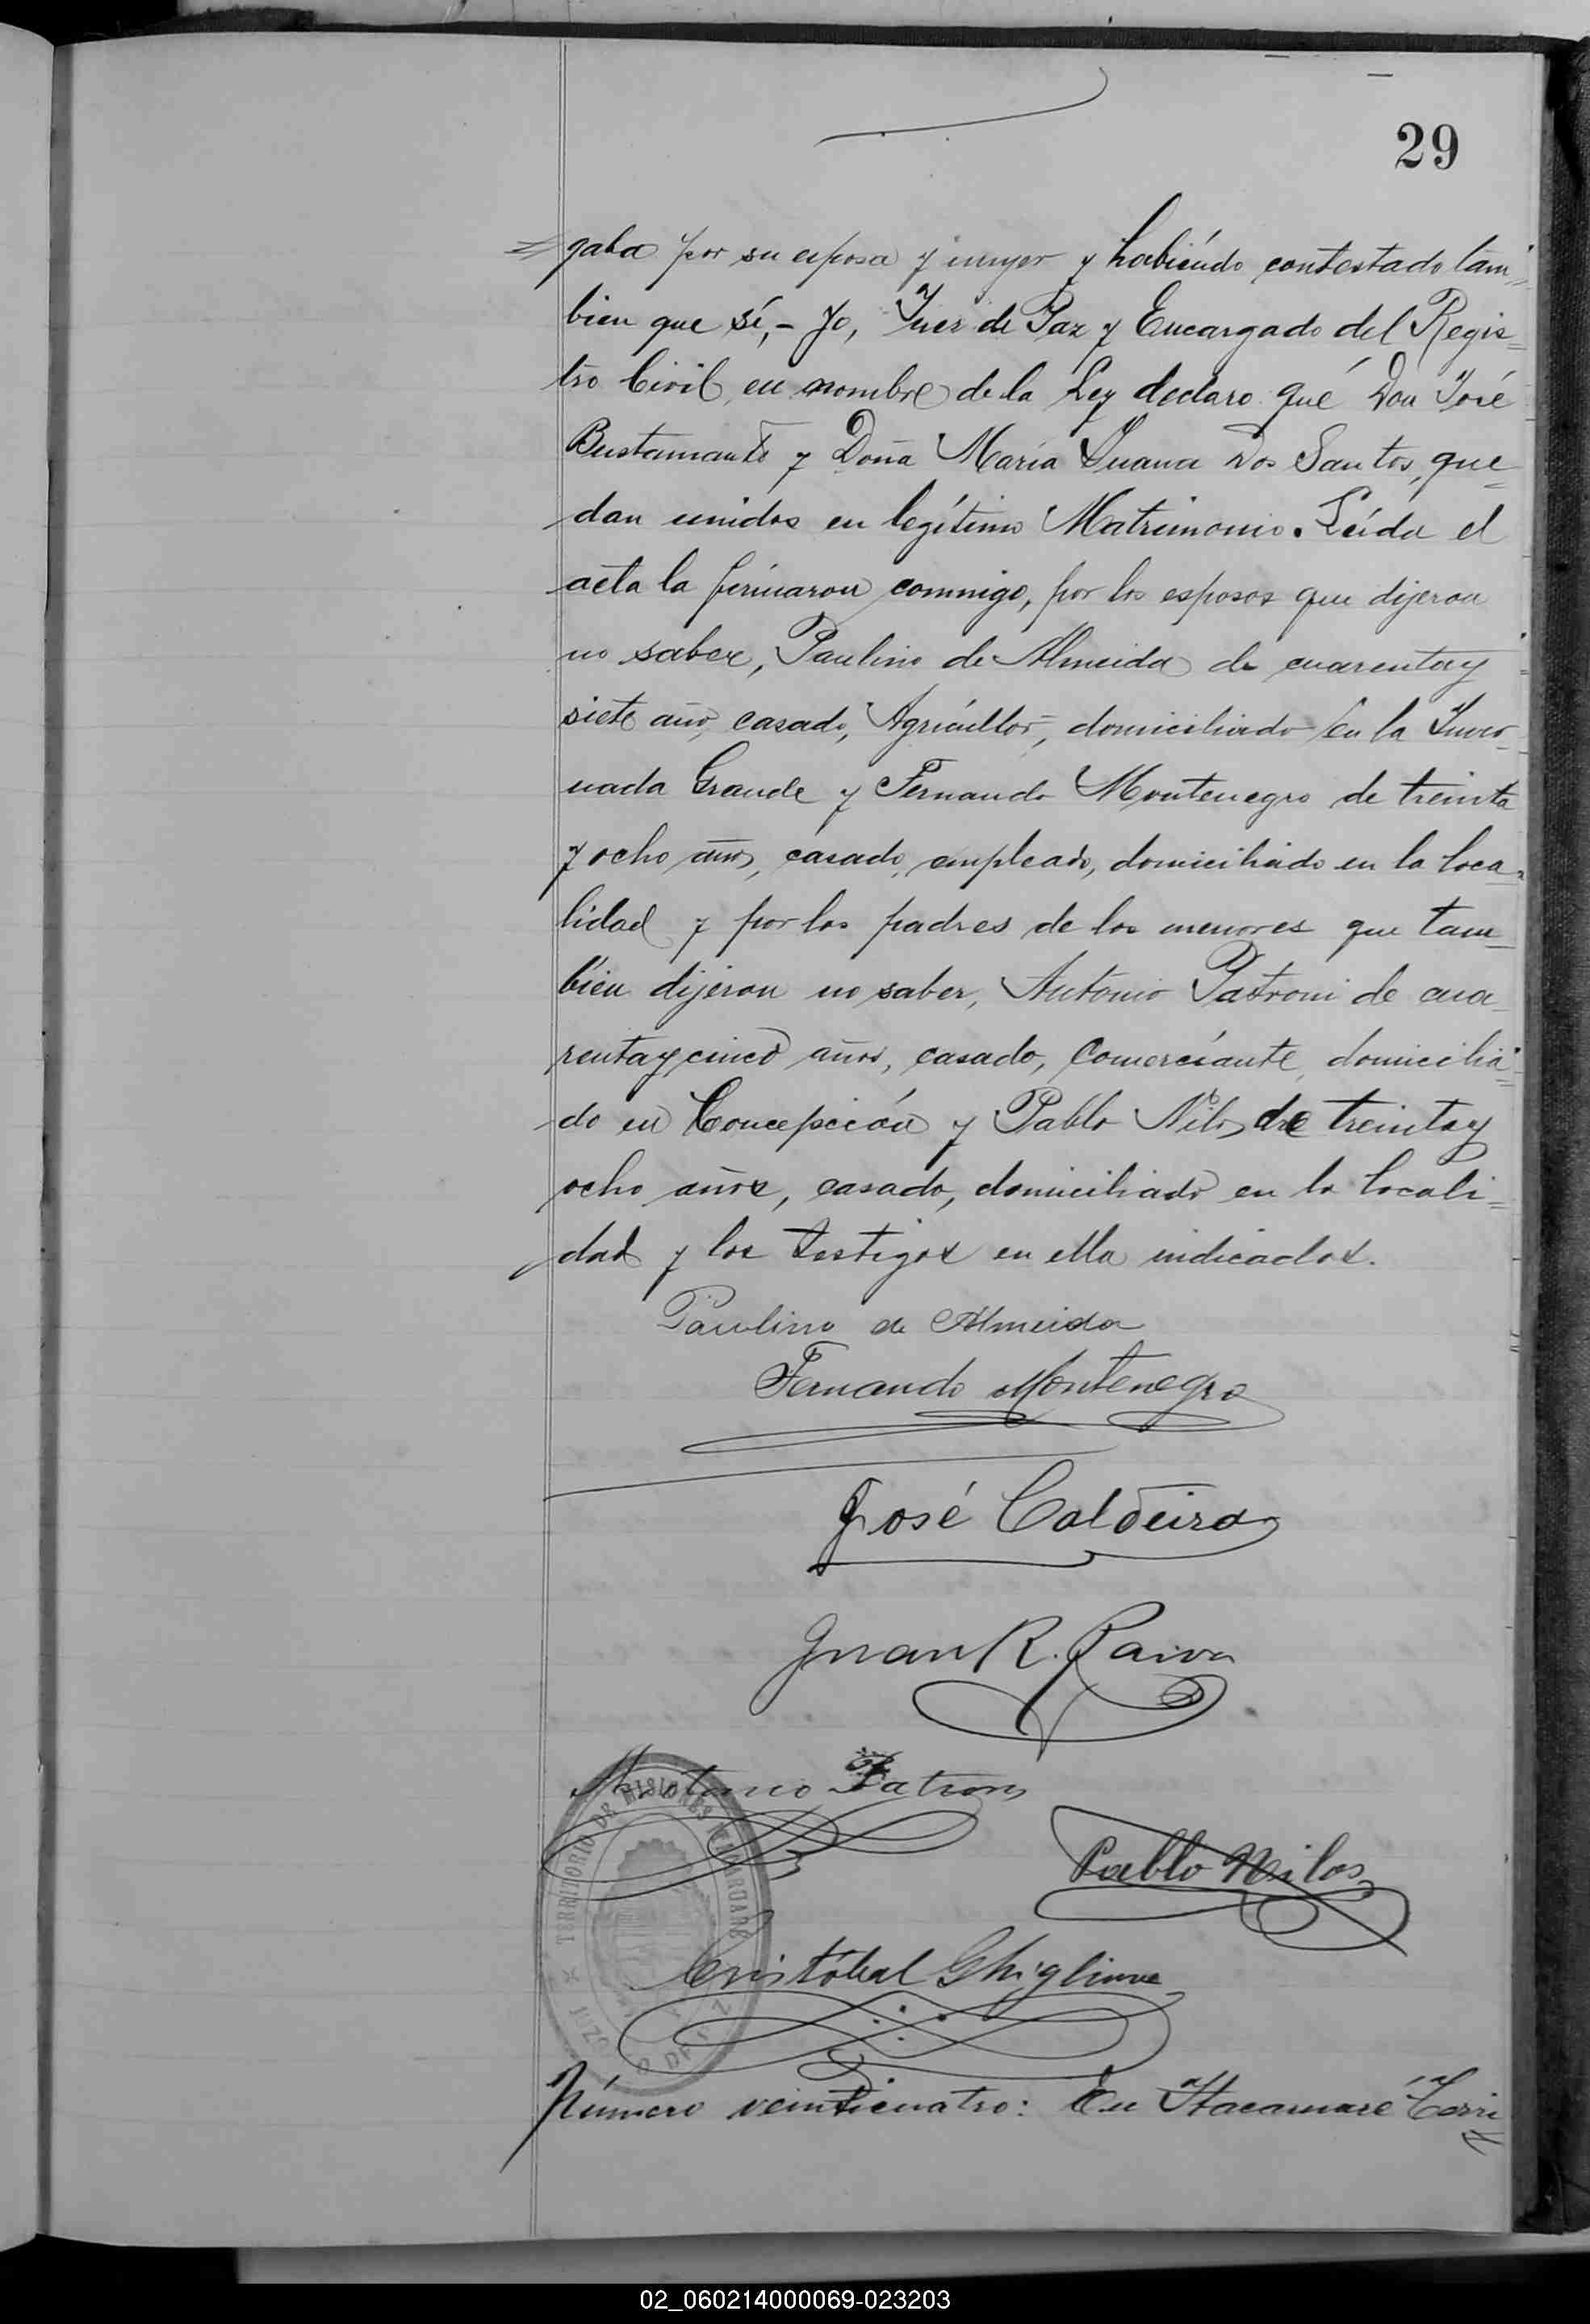 29
gaba por su esposa y muger y habiéndo contestado tam=
bien que sí,- Yo, Juez de Paz y Encargado del Regis=
tro Civil, en nombre de la Ley declaro que Don José
Bustamante y Doña María Juana Dos Santos, que=
dan unidos en legítimo Matrimonio. Leída el
acta la firmaron commigo, por los esposos que dijeron
no saber, Paulino de Almeida de cuarentay
siete año, casado, Agricultor, domiciliado en la Inver=
nada Grande y Fernando Montenegro de treinta
y ocho años, casado, empleado, domiciliado en la loca=
lidad y por los padres de los menores que tam=
bien dijeron no saber, Antonio Patroni de cua=
rentay cinco años, casado, Comerciante, domicilia=
do en Concepción y Pablo Nilos de treintay
ocho años, casado, domiciliado en la locali=
dad y los testigos en ella indicados.
Paulino de Almeida
Fernando Montenegro
José Caldeira
Juan R. Paiva
Antonio Patroni
TERRITORIO DE MISIONES
Pablo Nilos
Cristóbal Ghiglione
Número veinticuatro: En Itacaruaré Terri=
02_060214000069-023203